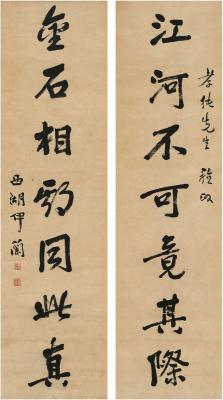 孝純先生 雅政
江河不可竟其際
金石相同此真
西湖伊蘭